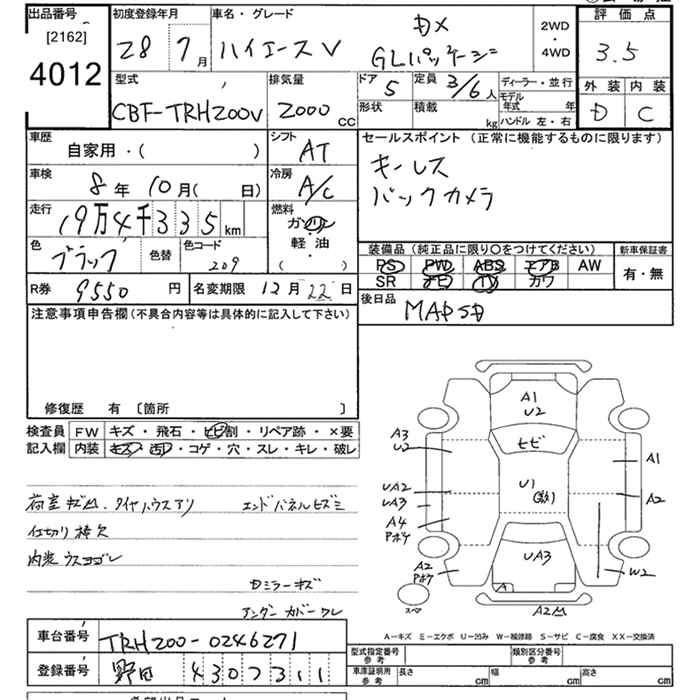 出品番号
[2162]
4012
初度登録年月
28 7月
車名・グレード
ハイエースV
DX
GLパッケージ
2WD
・
4WD
評価点
3.5
外装 内装
D C
型式
CBF-TRH200V
排気量
2000 CC
ドア
5
定員
3/6人
形状
積載 kg
ディーラー・並行
モデル
年式 年
ハンドル 左・右
車歴
自家用・( )
シフト
AT
車検
8年10月( 日)
冷房
A/C
走行
19万4千335 km
燃料
ガソリン
軽・油
( ・ )
色
ブラック
色替
色コード
209
R券 9550 円
名変期限 12月22日
セールスポイント (正常に機能するものに限ります)
キーレス
バックカメラ
装備品(純正品に限り○をつけてください)
PS PW ABS エアB AW
SR ナビ TV カワ
新車保証書
有・無
後日品
MAPSD
注意事項申告欄(不具合内容等は具体的に記入して下さい)
修復歴 有 〔箇所 〕
検査員
記入欄
FW キズ・飛石・ヒビ割・リペア跡・×要
内装 キズ・汚レ・コゲ・穴・スレ・キレ・破レ
荷室キズ凹、タイヤハウスアリ
エンドパネルヒズミ
仕切り棒欠
内装ウスヨゴレ
Dミラーキズ
アンダーカバーワレ
A1
U2
ヒビ
A3
U2
U1
(数)
A1
UA2
UA3
A2
A4
Pボケ
UA3
A2
Pボケ
W2
A
スペア
A2凹
A−キズ E−エクボ U−凹み W−補修跡 S−サビ C−腐食 XX−交換済
車台番号 TRH200-0246271
登録番号 野田 430 ツ 311
型式指定番号
参考
類別区分番号
参考
車庫証明用
参考
長さ cm
幅 cm
高さ cm